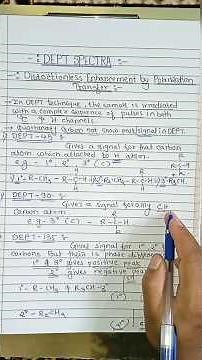 DEPT SPECTRA :-
Distortionless Enhancement by Polarisation
Transfer :-
→ In DEPT technique, the sample is irradiated
with a complex sequence of pulses in both
13C & H channels.
* Quaternary Carbon not show peak/signal in DEPT.
DEPT-45° :-
Gives a signal for that carbon
atom which attached to H atom.
DEPT-90° :-
Gives a signal for only CH
Carbon atom
e.g - 3° (C) - R-C-H
DEPT-135° :-
Gives signal for 1°, 2°
carbons but there is phase
1° & 3° gives positive peak
2° gives negative peak
1° - R-CH3 & R3CH-3°
2° - R2CH2